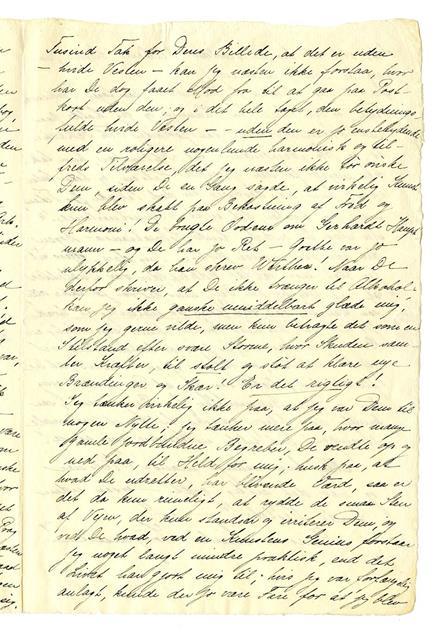 Tusind Tak for Deres Billede, at det er uden
– hvide Vesten – kan jeg næsten ikke forstaa, hvor
har De dog faaet Mod fra til at gaa paa Post-
kort uden den, og i det hele taget, den betydnings-
fulde hvide Vesten – uden den er jo ensbetydende
med en roligere nogenlunde harmonisk og til-
freds Tilværelse, det jeg næsten ikke tør ønske
Dem, siden De en Gang sagde, at virkelig Kunst
kun blev skabt paa Bekostning af Fred og
Harmoni! De brugte Ordene om Gerhardt Haupt-
mann – og De har jo Ret – Goethe var jo
ulykkelig, da han skrev Werther. Naar De
derfor skriver at De ikke trænger til Alkohol
kan jeg ikke ganske umiddelbart glæde mig,
som jeg gerne vilde, men kun betragte det som en
Stilstand efter svære Storme, hvor Skuden sam-
ler Kræfter, til stolt og støt at klare nye
Brændinger og Skær! Er det rigtigt!
Jeg tænker virkelig ikke paa, at jeg var Dem til
nogen Nytte; jeg tænker mere paa, hvor mange
gamle Begreber, De vendte op og
ned paa, til Held for mig; husk paa, at
hvad De udretter, har blivende Værd, saa er
det da kun rimeligt, at rydde de smaa Sten
af Vejen, der kun standser og irriterer Dem, og
ved De hvad, ved en Kunstens Genius forstaar
jeg noget langt mindre praktisk, end det
Livet har gjort mig til; hvis jeg var
anlagt, kunde der jo være Fare for at jeg blev